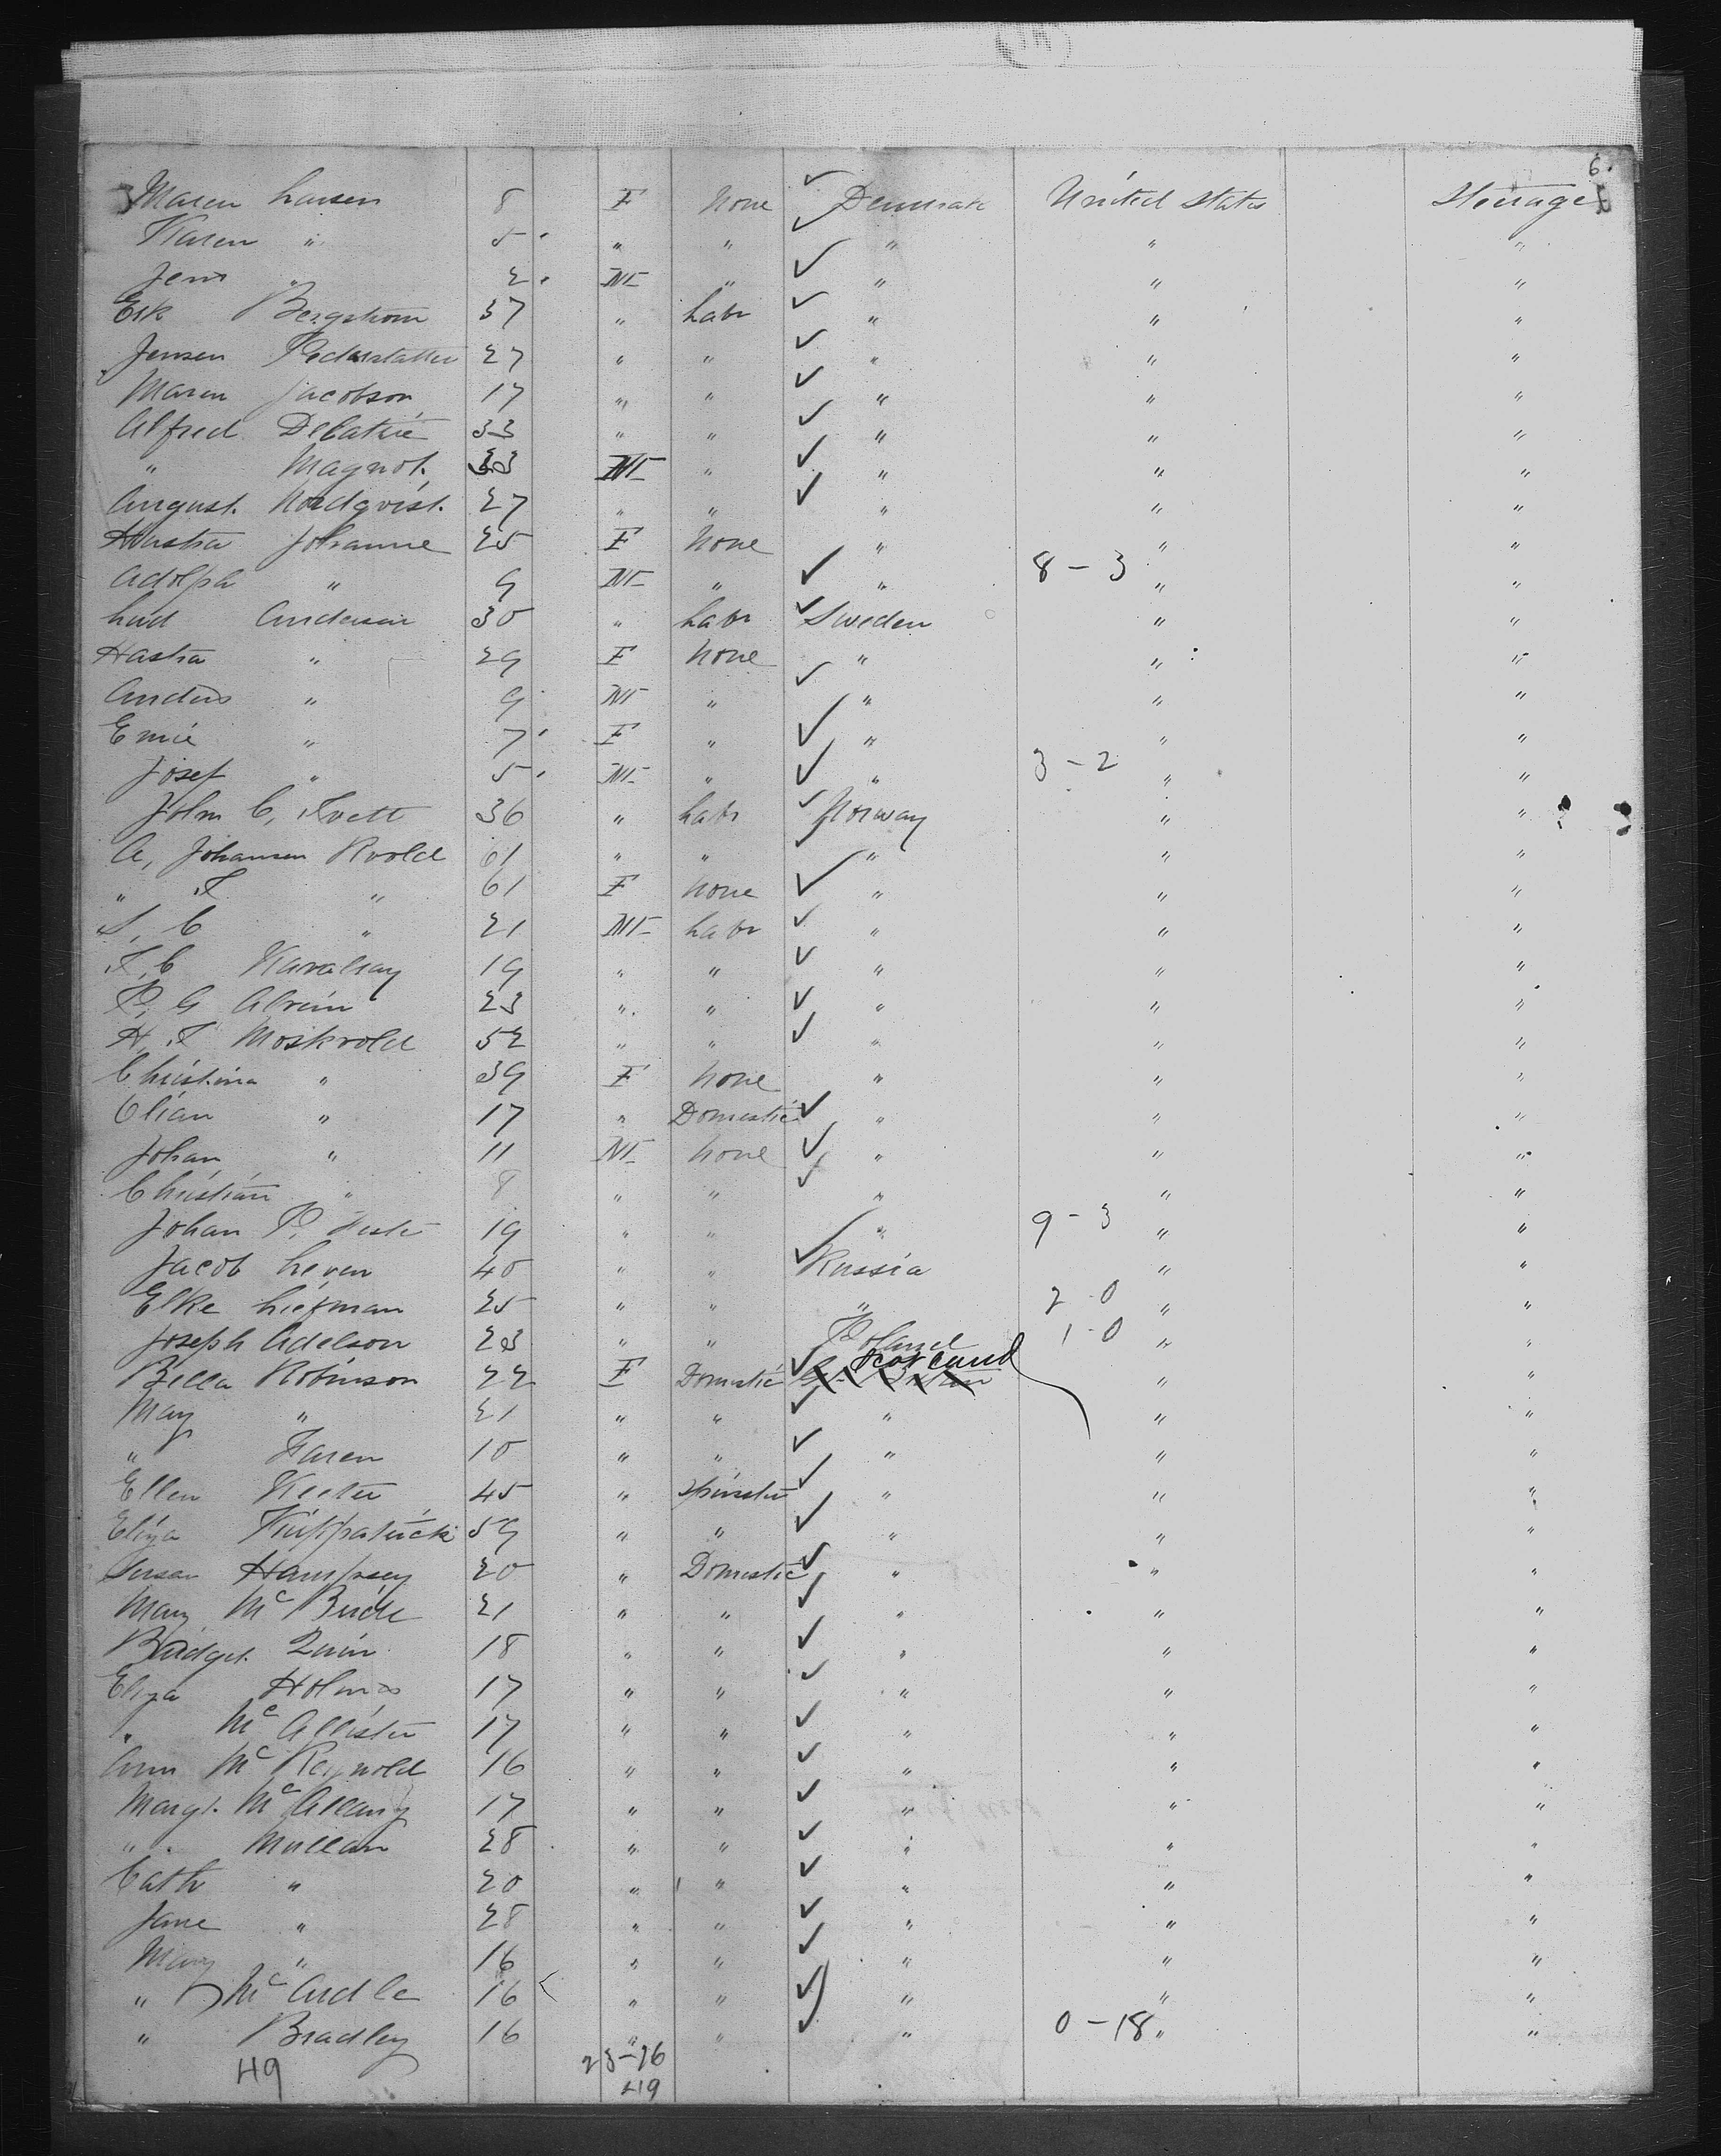 6.
Maren Larsen 8 F None Denmark United States Steerage
Karen " 5 " " " " "
Jens " 2 M " " " "
Erk Bergstrom 37 " Labr " " "
Jensen 27 " " " " "
Maren Jacobson 17 " " " " "
Alfred 33 " " " " "
" Magnot. 33 M " " " "
August. Nordqvist. 27 " " " " "
Johanne 25 F None " " "
Adolph " 9 M " " 8-3 " "
Lud Anderson 30 " Labr Sweden " "
Hastra " 29 F None " " "
Anders " 9 M " " " "
Emie " 7 F " " " "
Josef " 5 M " " 3-2 " "
John C, Tvett 36 " Labr Norway " "
A, Johansen Rvold 61 " " " " "
" T " 61 F None " " "
S, C " 21 M Labr " " "
T, C 19 " " " " "
P, G 23 " " " " "
H, T Moskvold 52 " " " " "
Christina " 39 F None " " "
Olian " 17 " Domestic " " "
Johan " 11 M None " " "
Christian " 8 " " " " "
Johan P. 19 " " " 9-3 " "
Jacob Leven 40 " " Russia " "
Elke Liefman 25 " " " 2-0 " "
Joseph Adelson 23 " " Poland 1-0 " "
Bella Robinson 22 F Domestic Scotland " "
May " 21 " " " " "
" Faren 10 " " " " "
Ellen 45 " Spinster " " "
Eliza Kirkpatrick 59 " " " " "
Susan Hampsey 20 " Domestic " " "
Mary McBride 21 " " " " "
Bridget. Quin 18 " " " " "
Eliza Holmes 17 " " " " "
" McAllister 17 " " " " "
Ann McReynold 16 " " " " "
Margt. 17 " " " " "
" Mullan 28 " " " " "
Cath " 20 " " " " "
Jane " 28 " " " " "
Mary " 16 " " " " "
" McArdle 16 " " " " "
" Bradley 16 " " " 0-18 " "
49 23-26
49